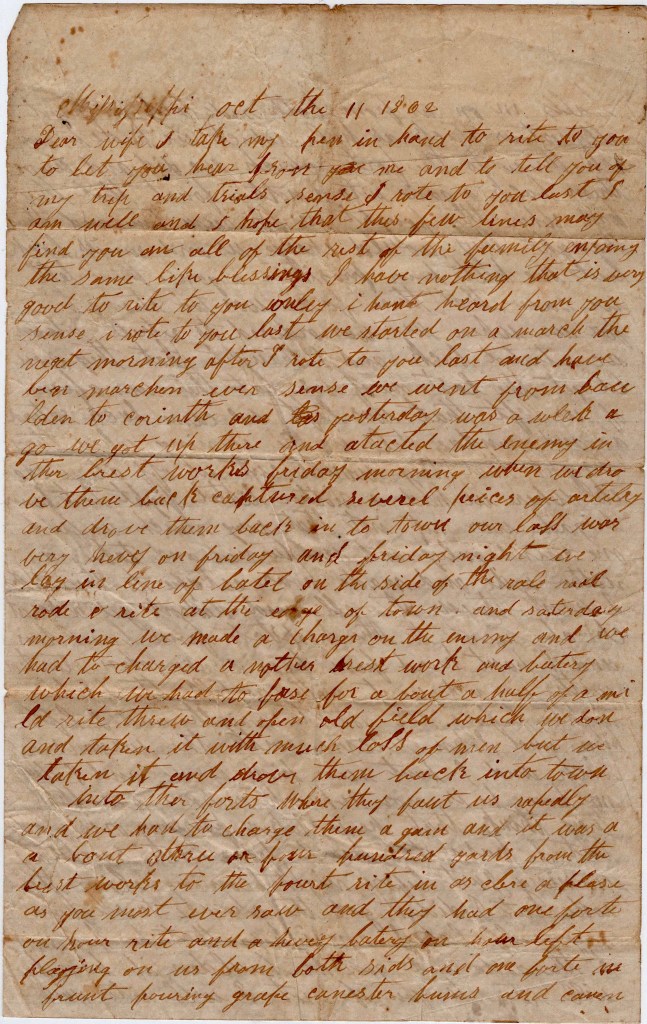 Mississippi oct the 11 1862
Dear wife I take my pen in hand to rite to you
to let you hear from me and to tell you of
my trip and trials sense I rote to you last I
am well and I hope that this few lines may
find you an all of the rest of the family enjoing
the same like blessings I have nothing that is very
good to rite to you onley i hant heard from you
sense i rote to you last we started on a march the
next morning after I rote to you last and have
bin marchen ever sense we went from bau
lden to corinth and yesterday was a week a
go we got up there and atacted the enemy in
ther brest works friday morning when we dro
ve them back captured severel peices of artelry
and drove them back in to town our loss was
very hevey on friday and friday night we
lay in line of batel on the side of the rale rail
rode rite at the edge of town and saterday
morning we made a charge on the enemy and we
had to charged a nother brest work and batery
which we had to fase for a bout a half of a mi
ld rite threw and open old field which we don
and taken it with much loss of men but we
taken it and drove them back into town
into ther forts where they faut us rapedly
and we had to charge them a gain and it was a
a bout three or four hundred yards from the
brest works to the fourt rite in as clere a plase
as you most ever saw and they had one forte
on hour rite and a hevey batery on hour left
playing on us from both sids and one forte in
frunt pouring grape canester bums and canon